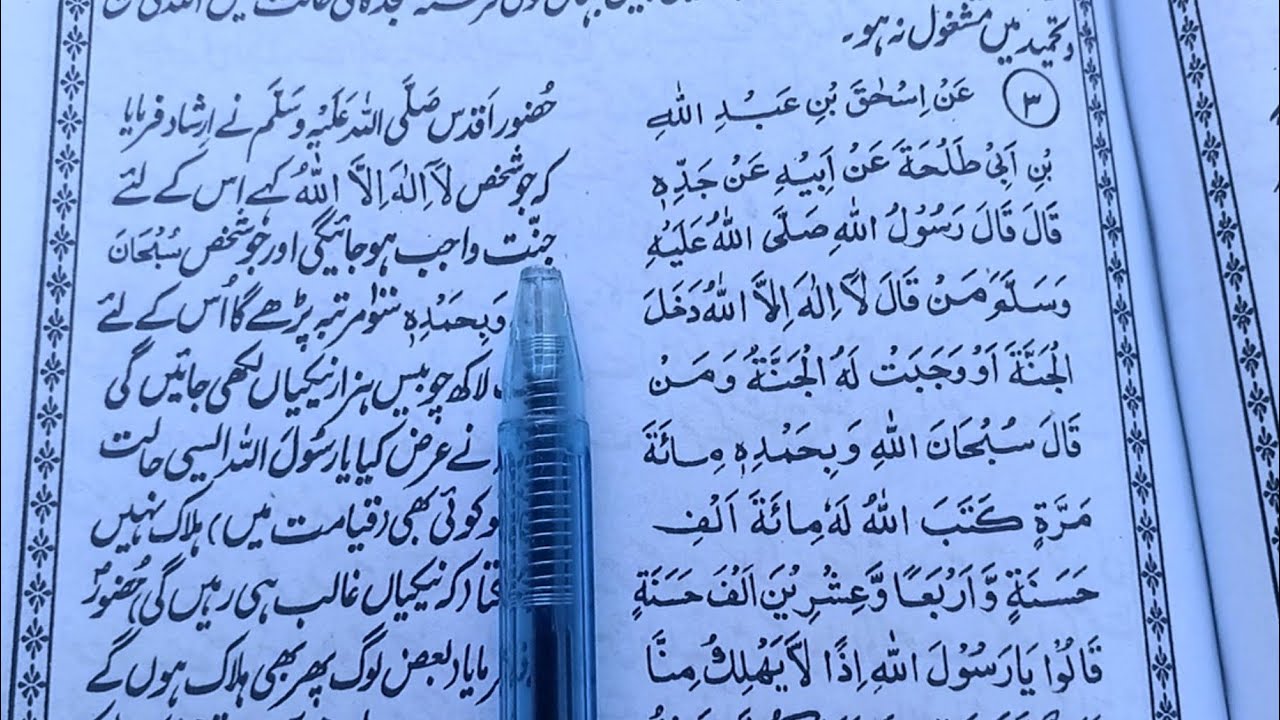 و تحمید میں مشغول نہ ہو۔
۳ عَنْ اِسْحٰقَ بْنِ عَبْدِ اللّٰهِ
بْنِ اَبِیْ طَلْحَةَ عَنْ اَبِیْهِ عَنْ جَدِّهٖ
قَالَ قَالَ رَسُوْلُ اللّٰهِ صَلَّی اللّٰهُ عَلَیْهِ
وَسَلَّمَ مَنْ قَالَ لَآ اِلٰهَ اِلَّا اللّٰهُ دَخَلَ
الْجَنَّةَ اَوْ وَجَبَتْ لَهُ الْجَنَّةُ وَ مَنْ
قَالَ سُبْحَانَ اللّٰهِ وَ بِحَمْدِهٖ مِائَةَ
مَرَّةٍ كَتَبَ اللّٰهُ لَهٗ مِائَةَ اَلْفِ
حَسَنَةٍ وَّاَرْبَعًا وَّعِشْرِیْنَ اَلْفَ حَسَنَةٍ
قَالُوْا یَا رَسُوْلَ اللّٰهِ اِذًا لَّا یَهْلِكُ مِنَّا
حُضُور اَقدس صَلَّی اللّٰہُ عَلَیْہِ وَسَلَّم نے اِرشاد فرمایا
کہ جو شخص لَآ اِلٰهَ اِلَّا اللّٰهُ کہے اس کے لئے
جنّت واجب ہو جائیگی اور جو شخص سُبْحَانَ
وَ بِحَمْدِهٖ سَو مرتبہ پڑھے گا اُس کے لئے
لاکھ چوبیس ہزار نیکیاں لکھی جائیں گی
نے عرض کیا یا رسُولَ اللّٰہ ایسی حالت
کوئی بھی (قیامت میں) ہلاک نہیں
کہ نیکیاں غالب ہی رہیں گی) حُضُورؐ
بعض لوگ پھر بھی ہلاک ہوں گے